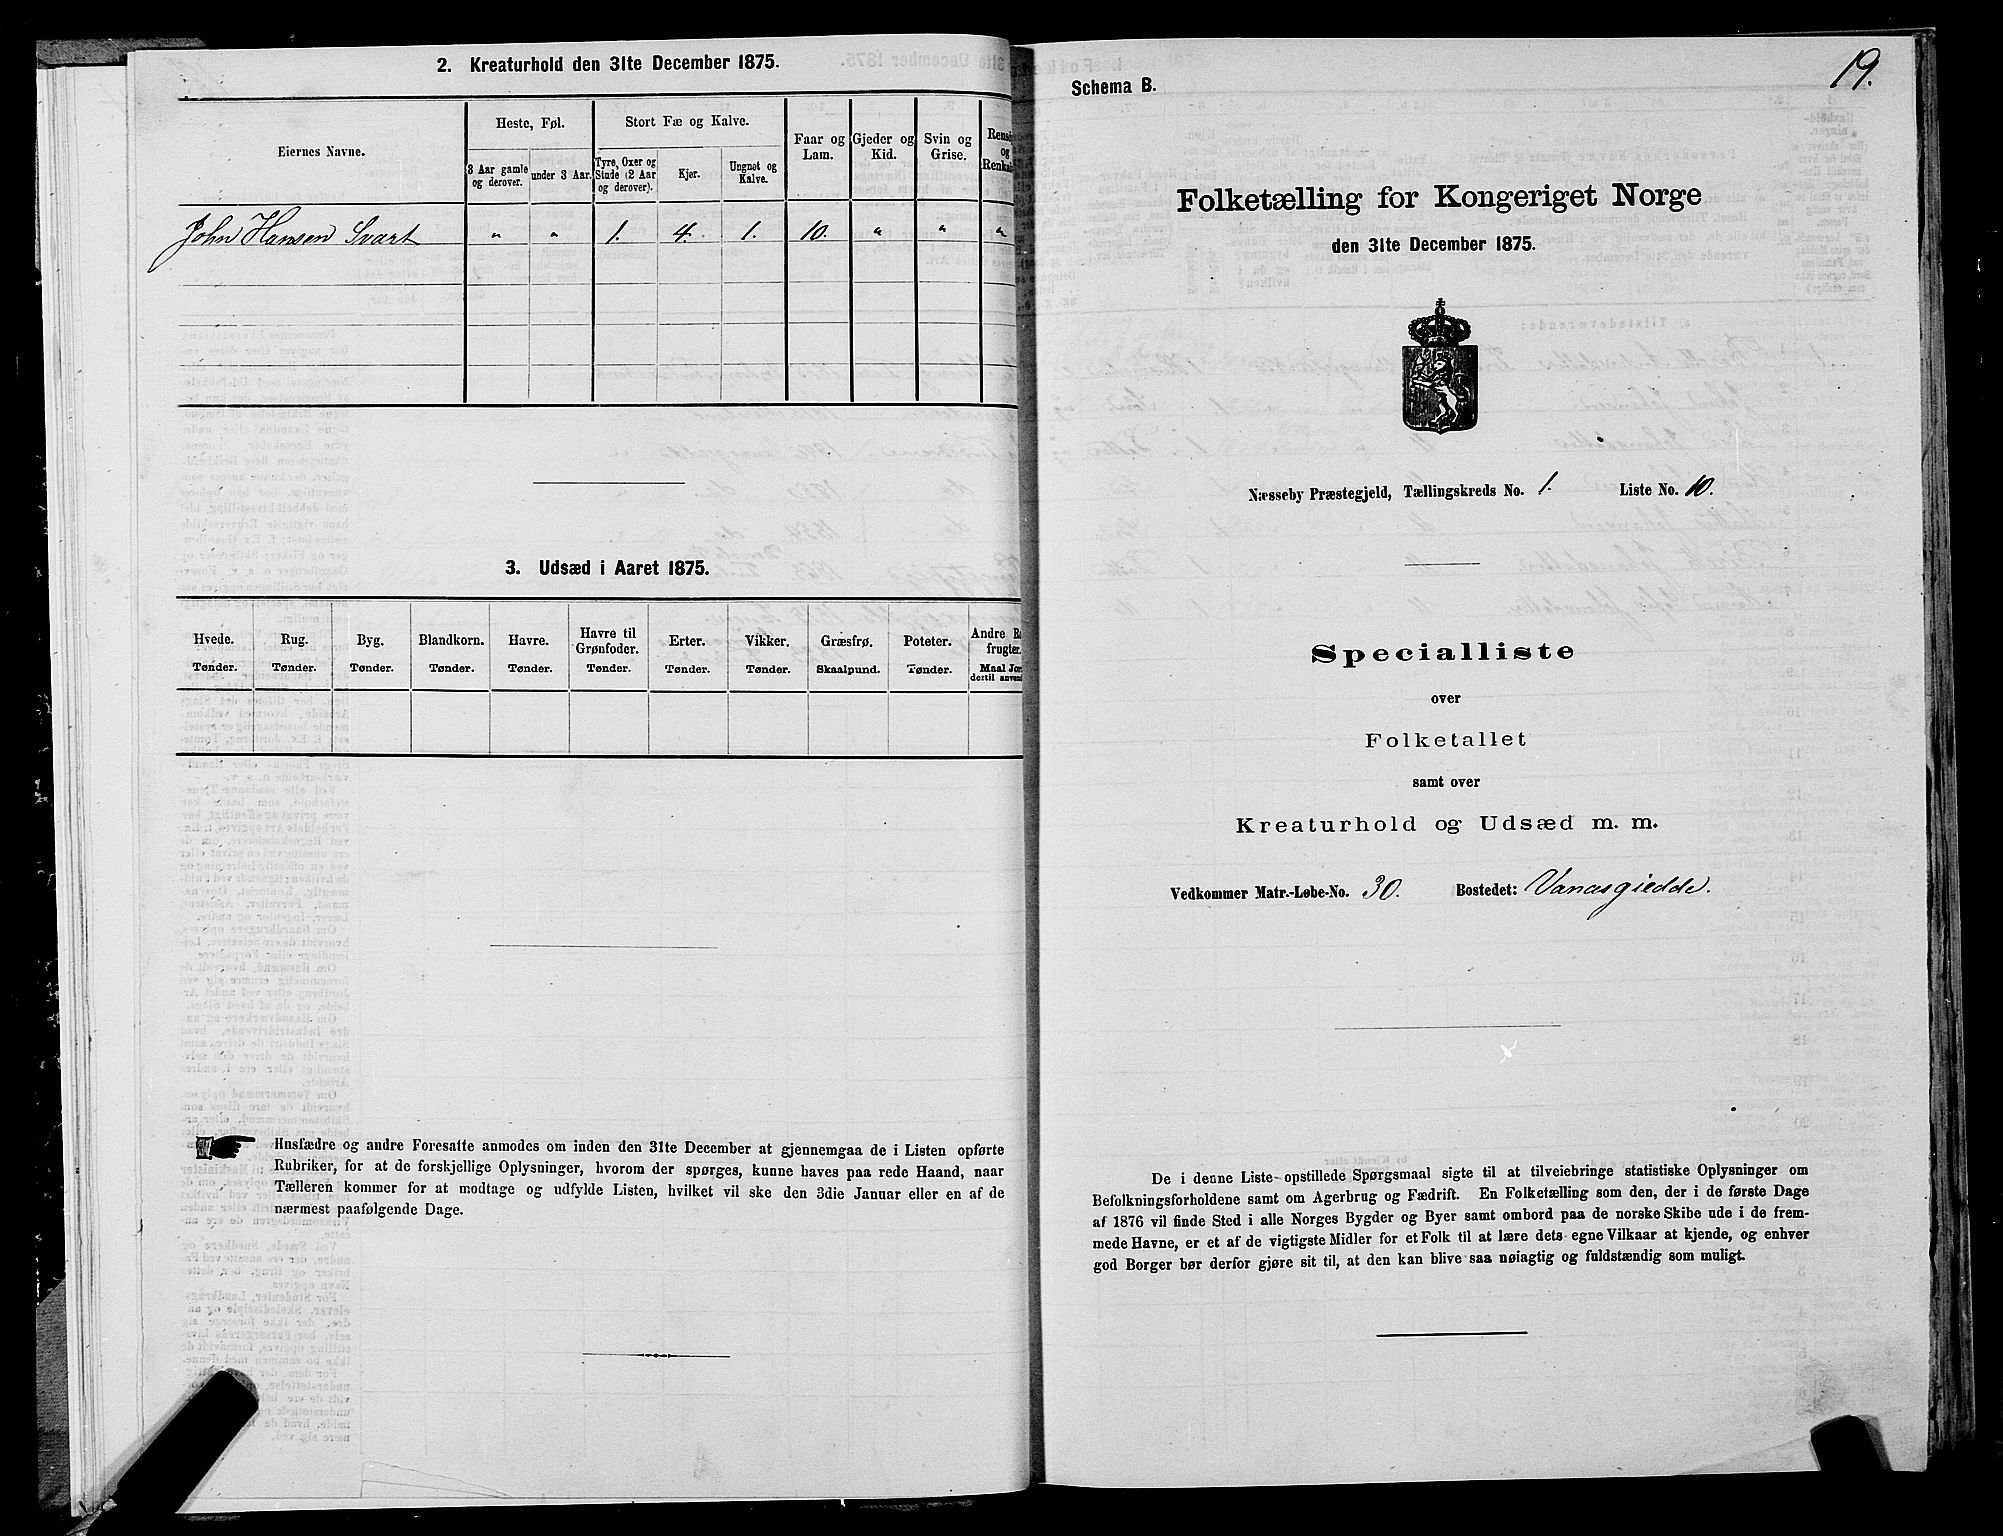 2. Kreaturhold den 31te December 1875.
Eiernes Navne.
Heste, Føl.
Stort Fæ og Kalve.
Faar og Lam.
Gjeder og Kid.
Svin og Grise.
3 Aar gamle og derover.
under 3 Aar.
Tyre, Oxer og Stude (2 Aar og derover).
Kjør.
Ungnøt og Kalve.
John Hansen Svart " " 1. 4. 1. 10. " " "
3. Udsæd i Aaret 1875.
Hvede. Rug. Byg. Blandkorn. Havre. Havre til Grønfoder. Erter. Vikker. Græsfrø. Poteter.
Tønder. Tønder. Tønder. Tønder. Tønder. Tønder. Tønder. Tønder. Skaalpund. Tønder.
Husfædre og andre Foresatte anmodes om inden den 31te December at gjennemgaa de i Listen opførte
Rubriker, for at de forskjellige Oplysninger, hvorom der spørges, kunne haves paa rede Haand, naar
Tælleren kommer for at modtage og udfylde Listen, hvilket vil ske den 3die Januar eller en af de
nærmest paafølgende Dage.
19.
Schema B.
Folketælling for Kongeriget Norge
den 31te December 1875.
Næsseby Præstegjeld, Tællingskreds No. 1. Liste No. 10.
Specialliste
over
Folketallet
samt over
Kreaturhold og Udsæd m. m.
Vedkommer Matr.-Løbe-No. 30. Bostedet: Vanasgiedde.
De i denne Liste opstillede Spørgsmaal sigte til at tilveiebringe statistiske Oplysninger om
Befolkningsforholdene samt om Agerbrug og Fædrift. En Folketælling som den, der i de første Dage
af 1876 vil finde Sted i alle Norges Bygder og Byer samt ombord paa de norske Skibe ude i de frem-
mede Havne, er et af de vigtigste Midler for et Folk til at lære dets egne Vilkaar at kjende, og enhver
god Borger bør derfor gjøre sit til, at den kan blive saa nøiagtig og fuldstændig som muligt.